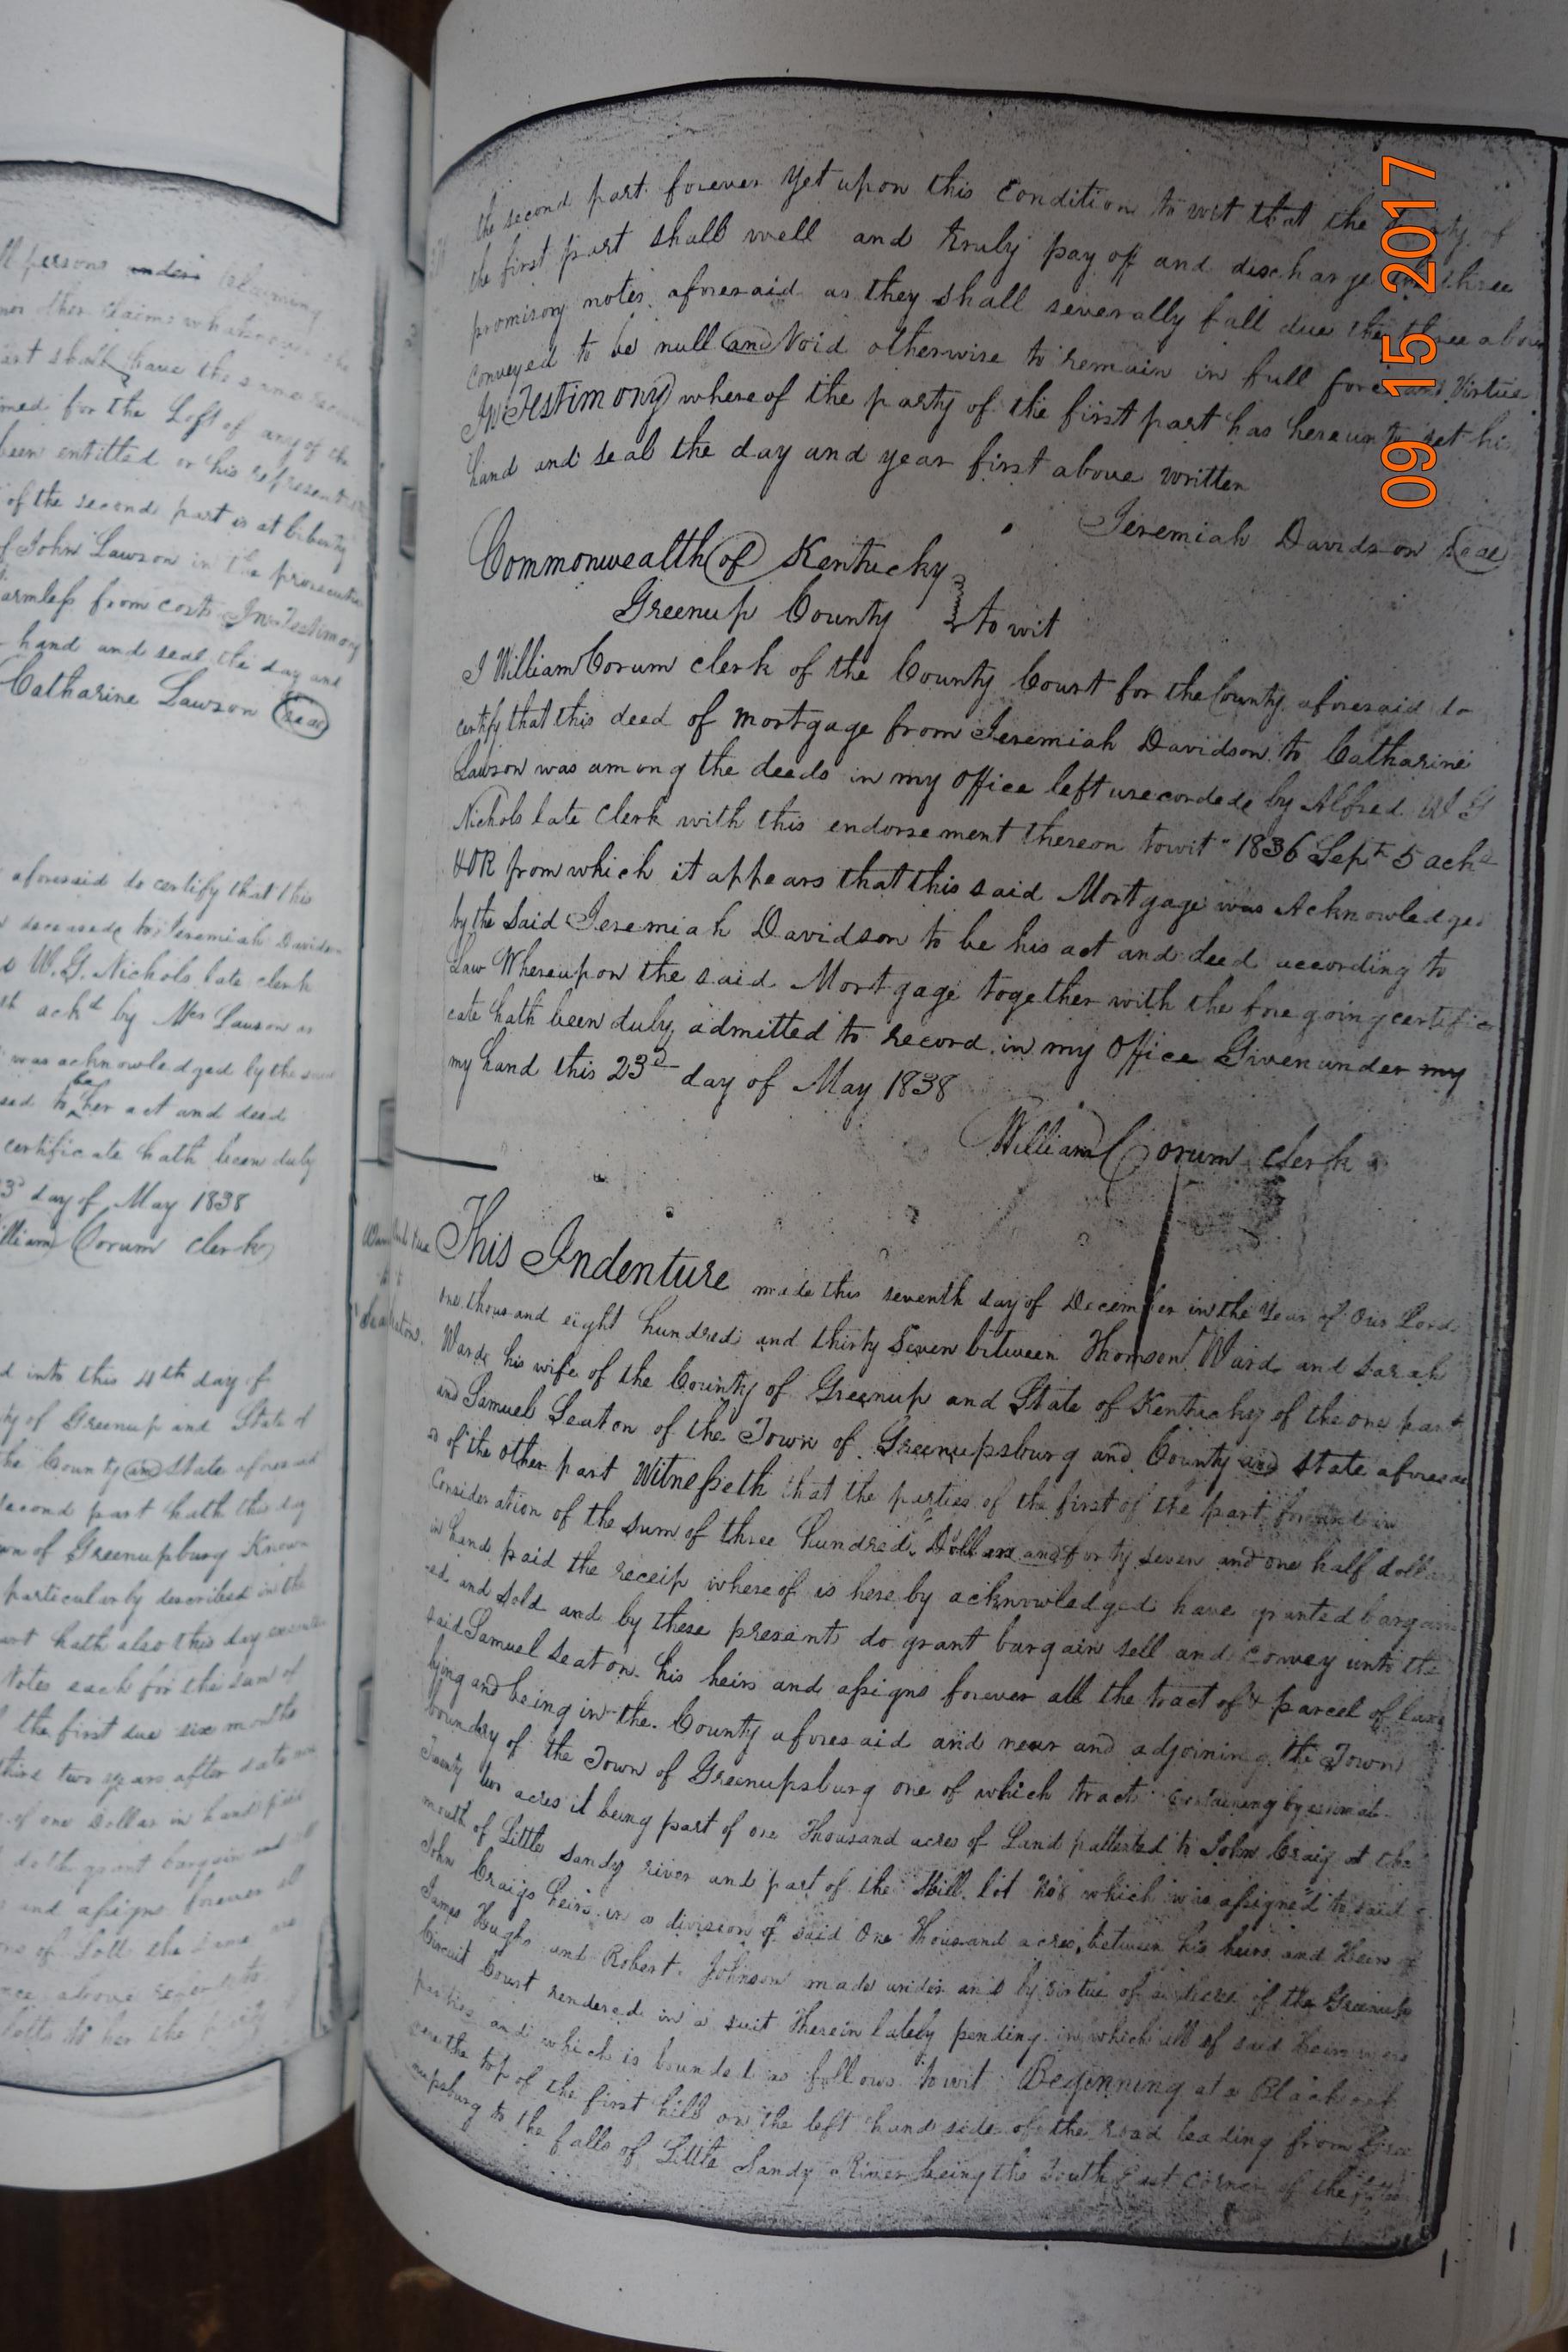 ll persons under claiming
nor other claims whatsoever
art shall have the same
med for the Loss of any of the
been entitled or his represent
of the second part is at liberty
of John Lawson in the prosecution
armless from costs In Testimony
hand and seal the day and
Catharine Lawson Seal
aforesaid do certify that this
deceased to Jeremiah Davids
W. G. Nichols late clerk
ackd by Mrs Lawson as
was acknowledged by the
sed to be her act and deed
certificate hath been duly
3d day of May 1838
illiam Corum clerk
d into this 4th day of
ty of Greenup and State of
he County and State aforesaid
second part hath this day
wn of Greenupsburg Known
particularly described in the
art hath also this day
Notes each for the sum of
the first due six months
third two years after date
of one Dollar in hand paid
doth grant bargain and
and assigns forever
of Lott the same
above
Lotts to her the party
the second part forever yet upon this Condition to wit that the party of
the first part shall well and truly pay off and discharge three
promisory notes aforesaid as they shall severally fall due the above
conveyed to be null and Void otherwise to remain in full force and Virtue
In Testimony whereof the party of the first part has hereunto set his
hand and seal the day and year first above written
Jeremiah Davidson Seal
Commonwealth of Kentucky
Greenup County to wit
I William Corum clerk of the County Court for the County aforesaid do
certify that this deed of mortgage from Jeremiah Davidson to Catharine
Lawson was among the deeds in my office left unrecorded by Alfred W G
Nichols late Clerk with this endorsement thereon towit "1836 Sept 5 ackd
&OR from which it appears that this said Mortgage was Acknowledged
by the Said Jeremiah Davidson to be his act and deed according to
Law Whereupon the said Mortgage together with the foregoing certifi
cate hath been duly admitted to record in my Office Given under my
my hand this 23d day of May 1838
William Corum clerk
This Indenture made this seventh day of December in the Year of Our Lord
one thousand eight hundred and thirty Seven between Thomson Ward and Sarah
Ward his wife of the County of Greenup and State of Kentucky of the one part
and Samuel Seaton of the Town of Greenupsburg and County and State aforesaid
of the other part Witnesseth that the parties of the first of the part for and in
Consideration of the sum of three hundred Dollars and forty seven and one half dollars
in hand paid the receip whereof is hereby acknowledged have granted bargain
ed and sold and by these presents do grant bargain sell and convey unto the
said Samuel Seaton his heirs and assigns forever all the tract of & parcel of land
lying and being in the County aforesaid and near and adjoining the Town
boundry of the Town of Greenupsburg one of which tracts containing by estimat
Twenty two acres it being part of one Thousand acres of Land pattented to John Craig at the
mouth of Little Sandy river and part of the Mill lot No 8 which was assigned to said
John Craigs heirs in a division of said One Thousand acres, between his heirs and Heirs of
James Hughs and Robert Johnson made under and by virtue of a decree of the Greenup
Circuit Court rendered in a suit therein lately pending in which all of said heirs were
parties and which is bounded as follows towit Beginning at a Black oak
near the top of the first hill on the left hand side of the road leading from Gree
nupsburg to the falls of Little Sandy River being the South East Corner of the
09 15 2017